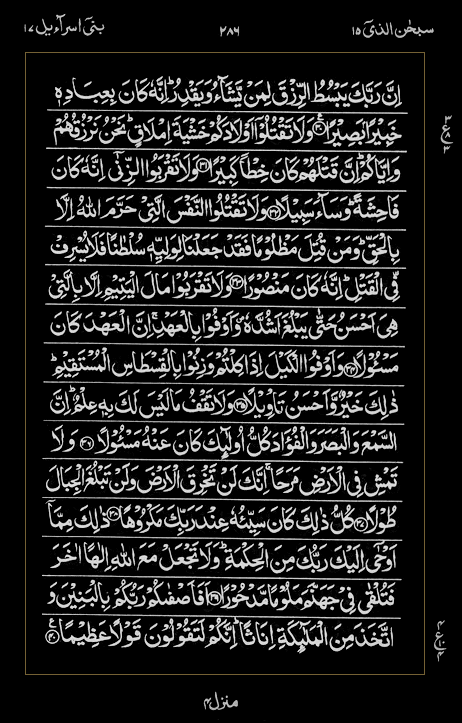 سبحٰن الذیٓ ۱۵
۲۸۶
بنیٓ اسرآءیل ۱۷
اِنَّ رَبَّكَ یَبْسُطُ الرِّزْقَ لِمَنْ یَّشَآءُ وَیَقْدِرُ ؕ اِنَّهٗ كَانَ بِعِبَادِهٖ
خَبِیْرًۢا بَصِیْرًا ﴿۳۰﴾ وَلَا تَقْتُلُوْۤا اَوْلَادَكُمْ خَشْیَةَ اِمْلَاقٍ ؕ نَحْنُ نَرْزُقُهُمْ
وَاِیَّاكُمْ ؕ اِنَّ قَتْلَهُمْ كَانَ خِطْاً كَبِیْرًا ﴿۳۱﴾ وَلَا تَقْرَبُوا الزِّنٰۤی اِنَّهٗ كَانَ
فَاحِشَةً ؕ وَسَآءَ سَبِیْلًا ﴿۳۲﴾ وَلَا تَقْتُلُوا النَّفْسَ الَّتِیْ حَرَّمَ اللّٰهُ اِلَّا
بِالْحَقِّ ؕ وَمَنْ قُتِلَ مَظْلُوْمًا فَقَدْ جَعَلْنَا لِوَلِیِّهٖ سُلْطٰنًا فَلَا یُسْرِفْ
فِّی الْقَتْلِ ؕ اِنَّهٗ كَانَ مَنْصُوْرًا ﴿۳۳﴾ وَلَا تَقْرَبُوْا مَالَ الْیَتِیْمِ اِلَّا بِالَّتِیْ
هِیَ اَحْسَنُ حَتّٰی یَبْلُغَ اَشُدَّهٗ ۪ وَاَوْفُوْا بِالْعَهْدِ ۚ اِنَّ الْعَهْدَ كَانَ
مَسْـُٔوْلًا ﴿۳۴﴾ وَاَوْفُوا الْكَیْلَ اِذَا كِلْتُمْ وَزِنُوْا بِالْقِسْطَاسِ الْمُسْتَقِیْمِ ؕ
ذٰلِكَ خَیْرٌ وَّاَحْسَنُ تَاْوِیْلًا ﴿۳۵﴾ وَلَا تَقْفُ مَا لَیْسَ لَكَ بِهٖ عِلْمٌ ؕ اِنَّ
السَّمْعَ وَالْبَصَرَ وَالْفُؤَادَ كُلُّ اُولٰٓئِكَ كَانَ عَنْهُ مَسْـُٔوْلًا ﴿۳۶﴾ وَلَا
تَمْشِ فِی الْاَرْضِ مَرَحًا ۚ اِنَّكَ لَنْ تَخْرِقَ الْاَرْضَ وَلَنْ تَبْلُغَ الْجِبَالَ
طُوْلًا ﴿۳۷﴾ كُلُّ ذٰلِكَ كَانَ سَیِّئُهٗ عِنْدَ رَبِّكَ مَكْرُوْهًا ﴿۳۸﴾ ذٰلِكَ مِمَّاۤ
اَوْحٰۤی اِلَیْكَ رَبُّكَ مِنَ الْحِكْمَةِ ؕ وَلَا تَجْعَلْ مَعَ اللّٰهِ اِلٰهًا اٰخَرَ
فَتُلْقٰی فِیْ جَهَنَّمَ مَلُوْمًا مَّدْحُوْرًا ﴿۳۹﴾ اَفَاَصْفٰىكُمْ رَبُّكُمْ بِالْبَنِیْنَ وَ
اتَّخَذَ مِنَ الْمَلٰٓئِكَةِ اِنَاثًا ؕ اِنَّكُمْ لَتَقُوْلُوْنَ قَوْلًا عَظِیْمًا ﴿۴۰﴾
منزل ۴